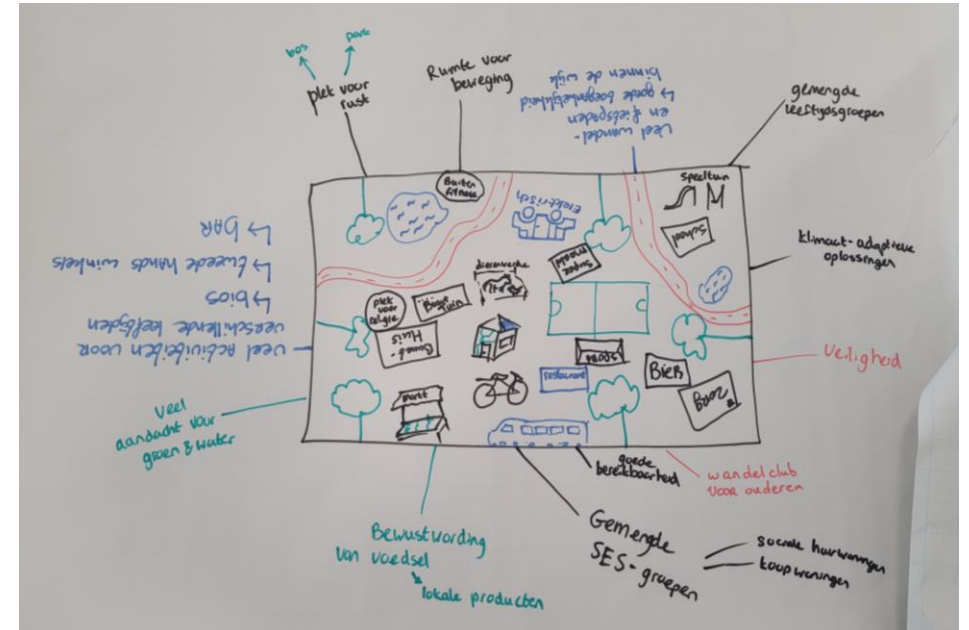 bos
park
plek voor
rust
Ruimte voor
beweging
Veel wandel-
en fietspaden
↳ goede toegankelijkheid
binnen de wijk
gemengde
leeftijdsgroepen
klimaat-adaptieve
oplossingen
Veiligheid
wandelclub
voor ouderen
goede
bereikbaarheid
Gemengde
SES-groepen
sociale huurwoningen
koopwoningen
Bewustwording
van voedsel
lokale producten
Veel
aandacht voor
groen & water
veel activiteiten voor
verschillende leeftijden
↳ bios
↳ tweede hands winkels
↳ bAR
Buiten
fitness
Elektrisch
speeltuin
School
super
markt
dierenweide
plek
voor
religie
Buurt
tuin
Buurt-
Huis
sport
restaurant
Bieb
Zorg
markt